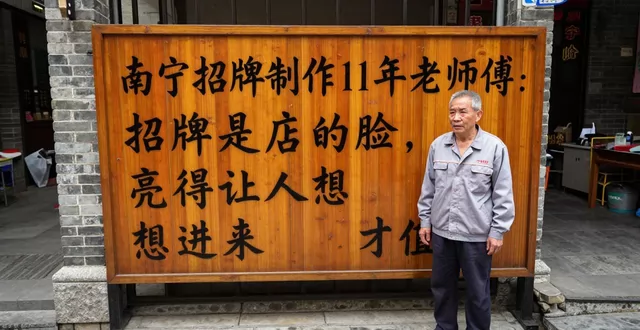 南宁招牌制作11年老师傅：
招牌是店的脸，
亮得让人想
想进来 才值